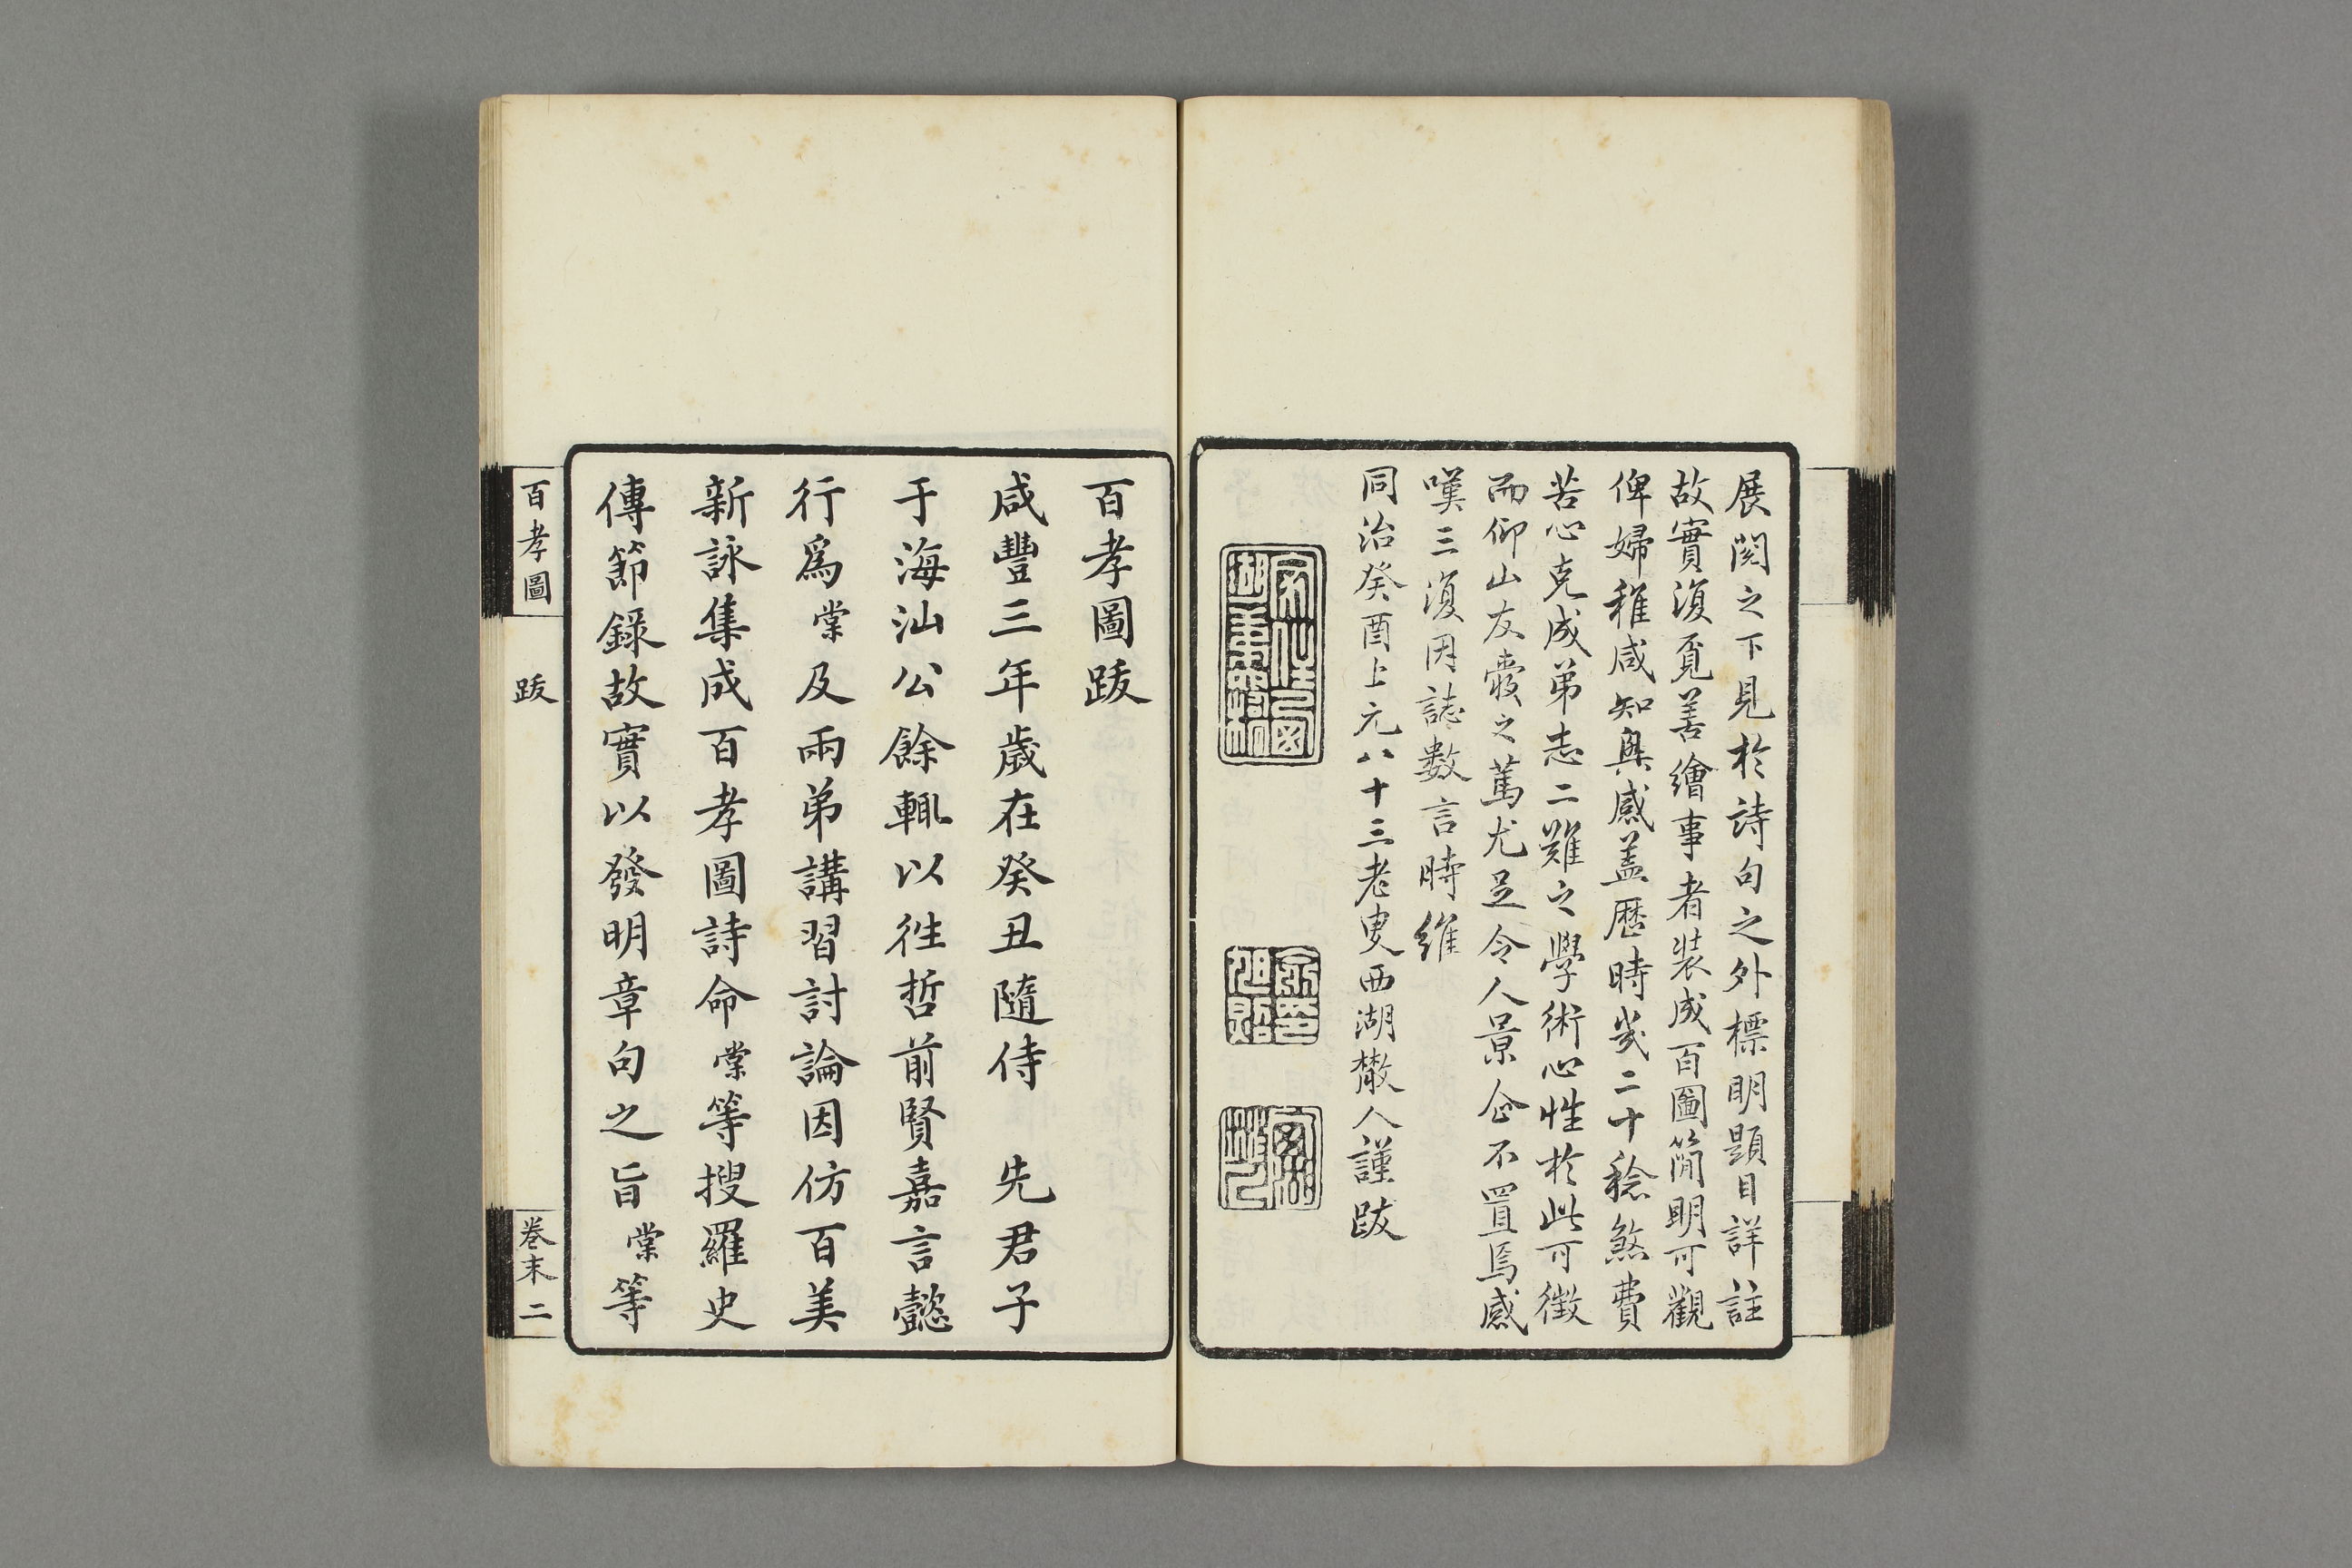 展閱之下見於詩句之外標明題目詳註
故實復覓善繪事者裝成百圖簡明可觀
俾婦稚咸知興感盖歷時幾二十稔煞費
苦心克成弟志二難之學術心性於此可徵
而仰山友愛之篤尤足令人景企不置焉感
嘆三復因誌數言時維
同治癸酉上元八十三老叟西湖散人謹跋
百孝圖跋
咸豐三年歲在癸丑隨侍 先君子
于海汕公餘輒以徃哲前賢嘉言懿
行爲棠及兩弟講習討論因仿百美
新詠集成百孝圖詩命棠等搜羅史
傳節錄故實以發明章句之旨棠等
百孝圖 跋 卷末 二